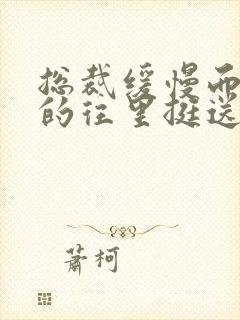 总裁缓慢而
的往里挺送
萧柯